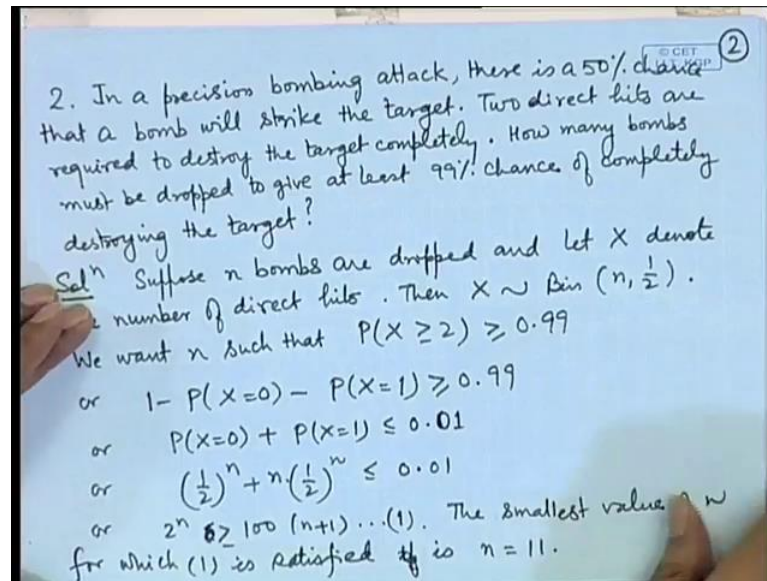 © CET
I.I.T. KGP
2
2. In a precision bombing attack, there is a 50% chance
that a bomb will strike the target. Two direct hits are
required to destroy the target completely. How many bombs
must be dropped to give at least 99% chance of completely
destroying the target?
Solⁿ Suppose n bombs are dropped and let X denote
number of direct hits. Then X ~ Bin (n, 1/2).
We want n such that P(X ≥ 2) ≥ 0.99
or 1 - P(X=0) - P(X=1) ≥ 0.99
or P(X=0) + P(X=1) ≤ 0.01
or (1/2)ⁿ + n·(1/2)ⁿ ≤ 0.01
or 2ⁿ ≥ 100 (n+1) ...(1). The smallest value n
for which (1) is satisfied is n = 11.